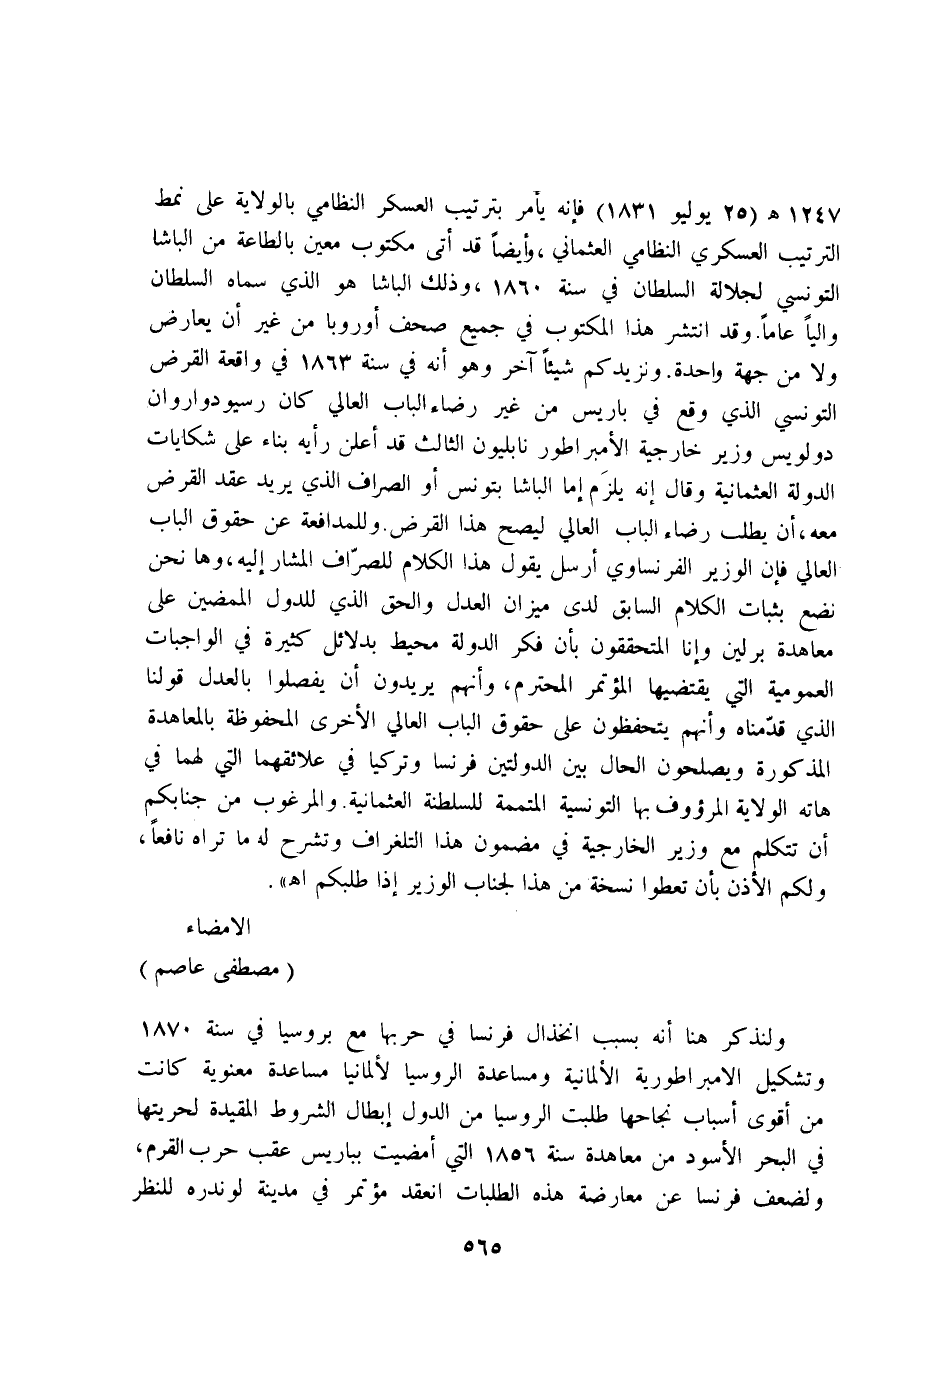 ١٢٤٧ ه (٢٥ يوليو ١٨٣١) فإنه يأمر بترتيب العسكر النظامي بالولاية على نمط
الترتيب العسكري النظامي العثماني ،وأيضاً قد أتى مكتوب معين بالطاعة من الباشا
التونسي لجلالة السلطان في سنة ١٨٦٠ ،وذلك الباشا هو الذي سماه السلطان
والياً عاماً. وقد انتشر هذا المكتوب في جميع صحف أوروبا من غير أن يعارض
ولا من جهة واحدة. ونزيدكم شيئاً آخر وهو أنه في سنة ١٨٦٣ في واقعة القرض
التونسي الذي وقع في باريس من غير رضاء الباب العالي كان رسيودواروان
دولويس وزير خارجية الأمبراطور نابليون الثالث قد أعلن رأيه بناء على شكايات
الدولة العثمانية وقال إنه يلزَم إما الباشا بتونس أو الصراف الذي يريد عقد القرض
معه،أن يطلب رضاء الباب العالي ليصح هذا القرض. وللمدافعة عن حقوق الباب
العالي فإن الوزير الفرنساوي أرسل يقول هذا الكلام للصرّاف المشار إليه،وها نحن
نضع بثبات الكلام السابق لدى ميزان العدل والحق الذي للدول الممضين على
معاهدة برلين وإنا المتحققون بأن فكر الدولة محيط بدلائل كثيرة في الواجبات
العمومية التي يقتضيها المؤتمر المحترم، وأنهم يريدون أن يفصلوا بالعدل قولنا
الذي قدّمناه وأنهم يتحفظون على حقوق الباب العالي الأخرى المحفوظة بالمعاهدة
المذكورة ويصلحون الحال بين الدولتين فرنسا وتركيا في علائقهما التي لهما في
هاته الولاية المرؤوف بها التونسية المتممة للسلطنة العثمانية. والمرغوب من جنابكم
أن تتكلم مع وزير الخارجية في مضمون هذا التلغراف وتشرح له ما تراه نافعاً،
ولكم الأذن بأن تعطوا نسخة من هذا لجناب الوزير إذا طلبكم اه» .
الامضاء
( مصطفى عاصم )
ولنذكر هنا أنه بسبب انخذال فرنسا في حربها مع بروسيا في سنة ١٨٧٠
وتشكيل الامبراطورية الألمانية ومساعدة الروسيا لألمانيا مساعدة معنوية كانت
من أقوى أسباب نجاحها طلبت الروسيا من الدول إبطال الشروط المقيدة لحريتها
في البحر الأسود من معاهدة سنة ١٨٥٦ التي أمضيت بباريس عقب حرب القرم،
ولضعف فرنسا عن معارضة هذه الطلبات انعقد مؤتمر في مدينة لوندره للنظر
٥٦٥